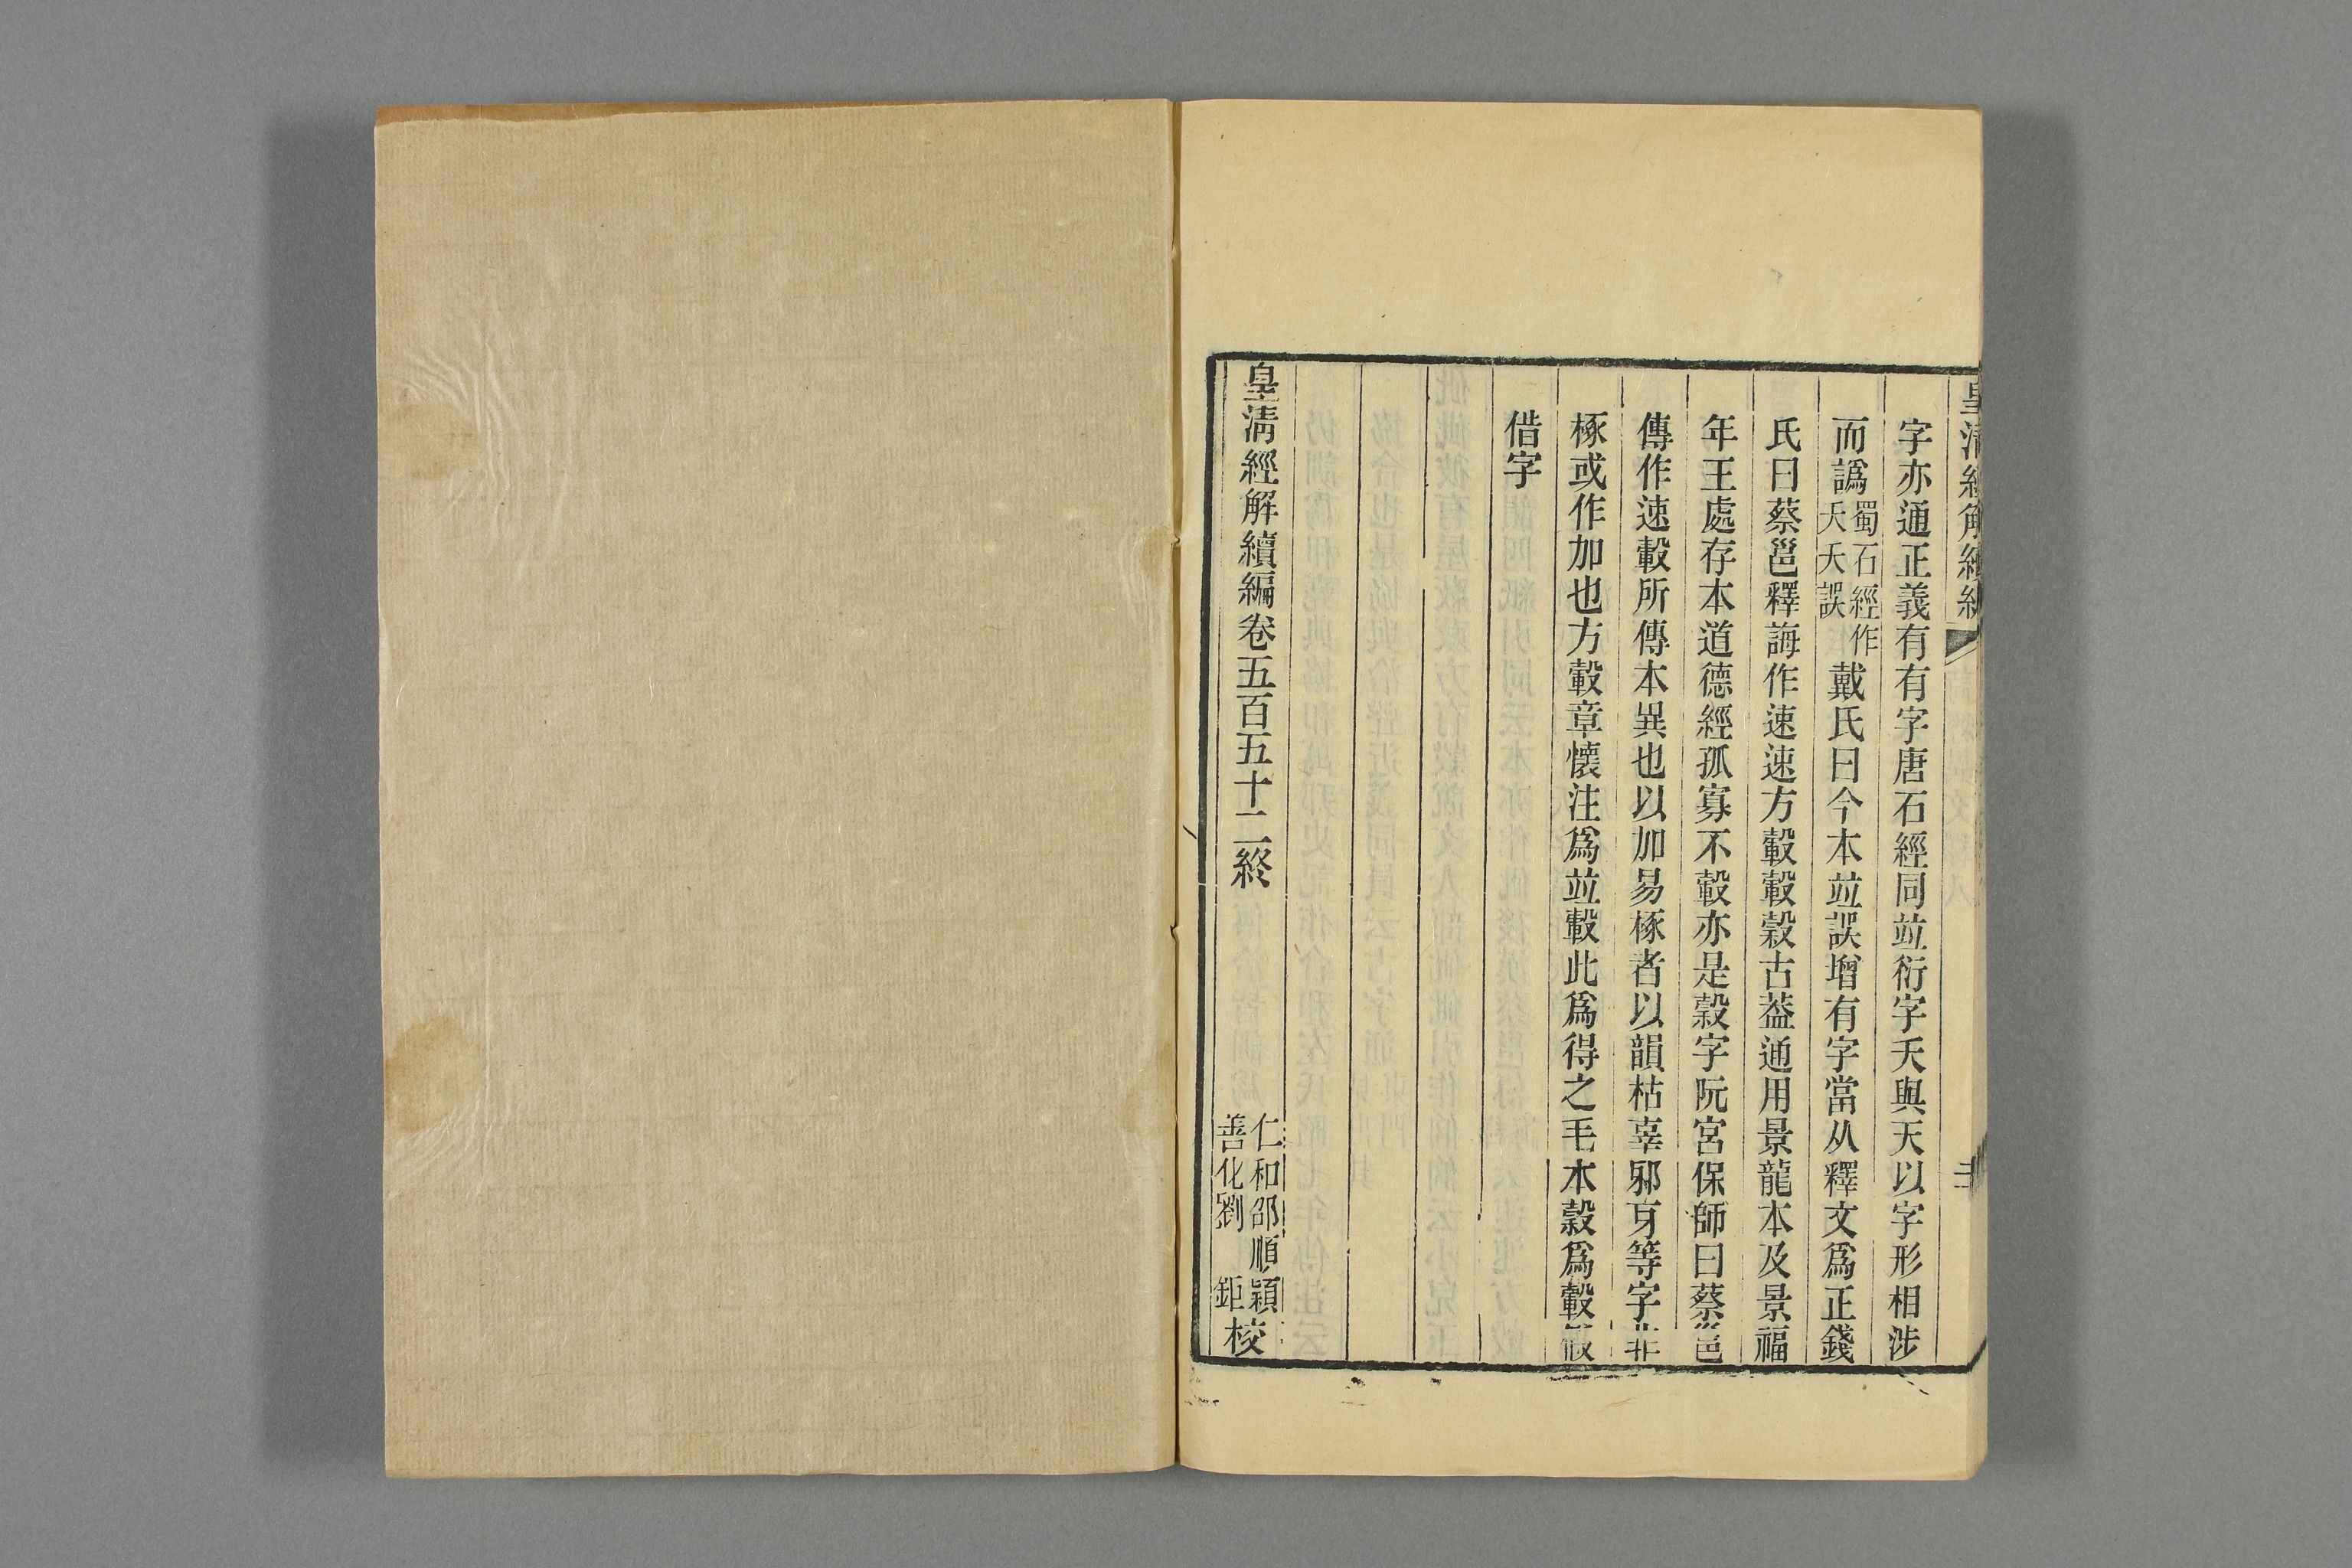 皇清經解續編
字亦通正義有有字唐石經同竝衍字夭與天以字形相涉
而譌蜀石經作夭夭誤戴氏曰今本竝誤增有字當从釋文爲正錢
氏曰蔡邕釋誨作速速方轂轂榖古葢通用景龍本及景福
年王處存本道德經孤寡不轂亦是榖字阮宮保師曰蔡邕
傳作速轂所傳本異也以加易椓者以韻枯辜邪亨等字非
椓或作加也方轂章懷注爲竝轂此爲得之毛本榖爲轂叚
借字
皇清經解續編卷五百五十二終
仁和邵順穎
善化劉鉅校